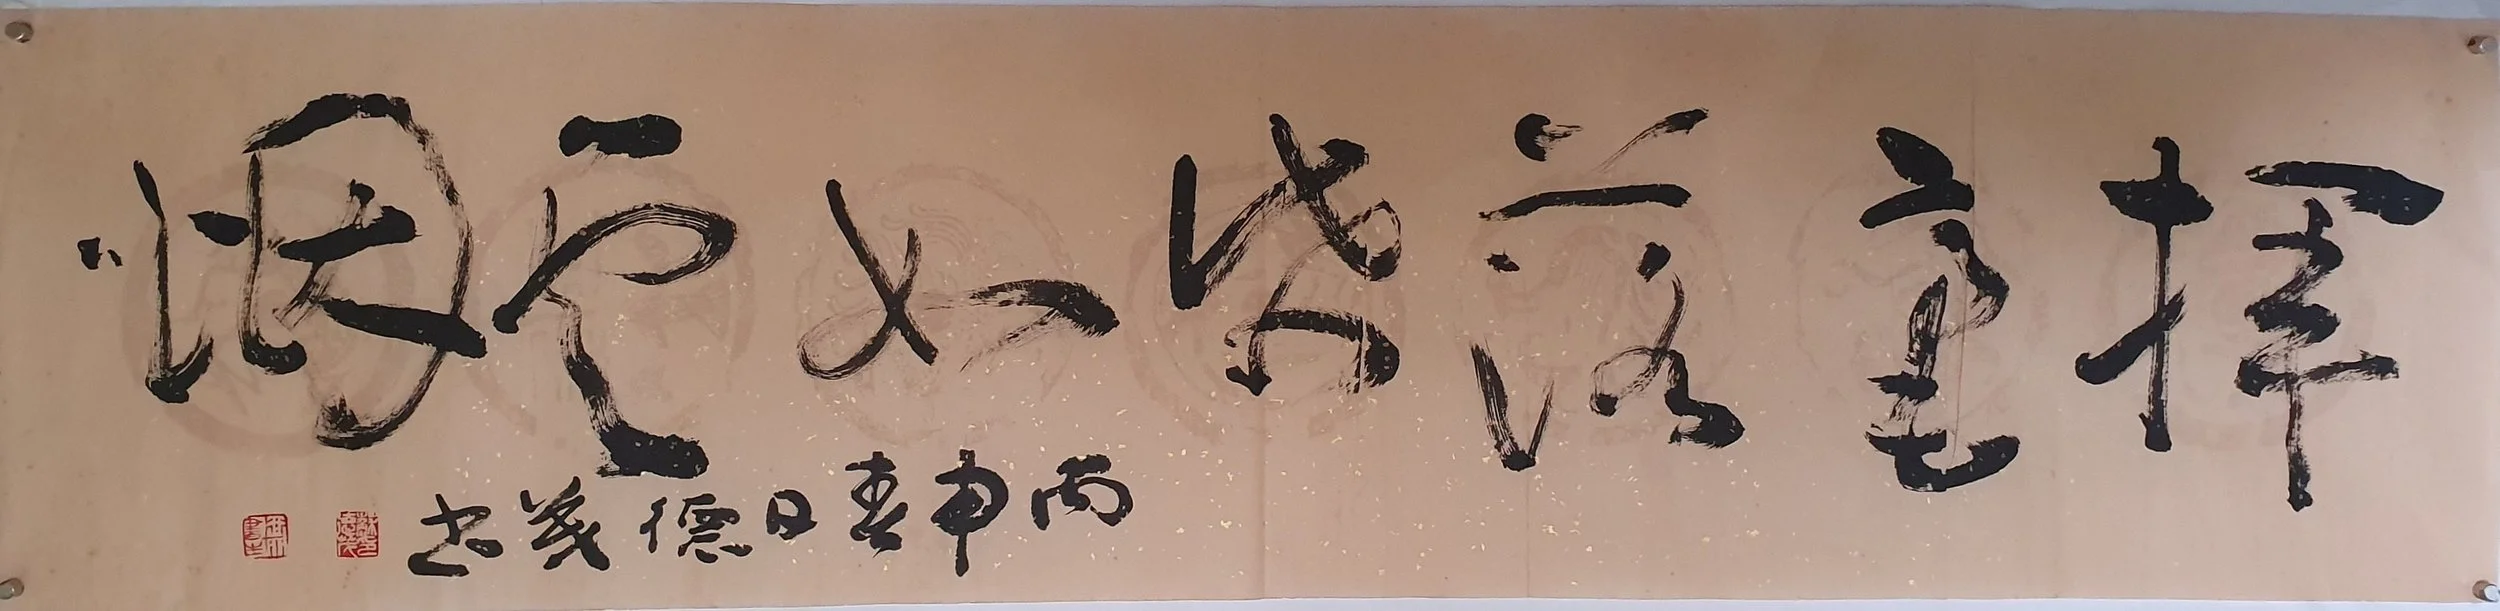 揮毫落紙如雲烟
丙申春日德義书